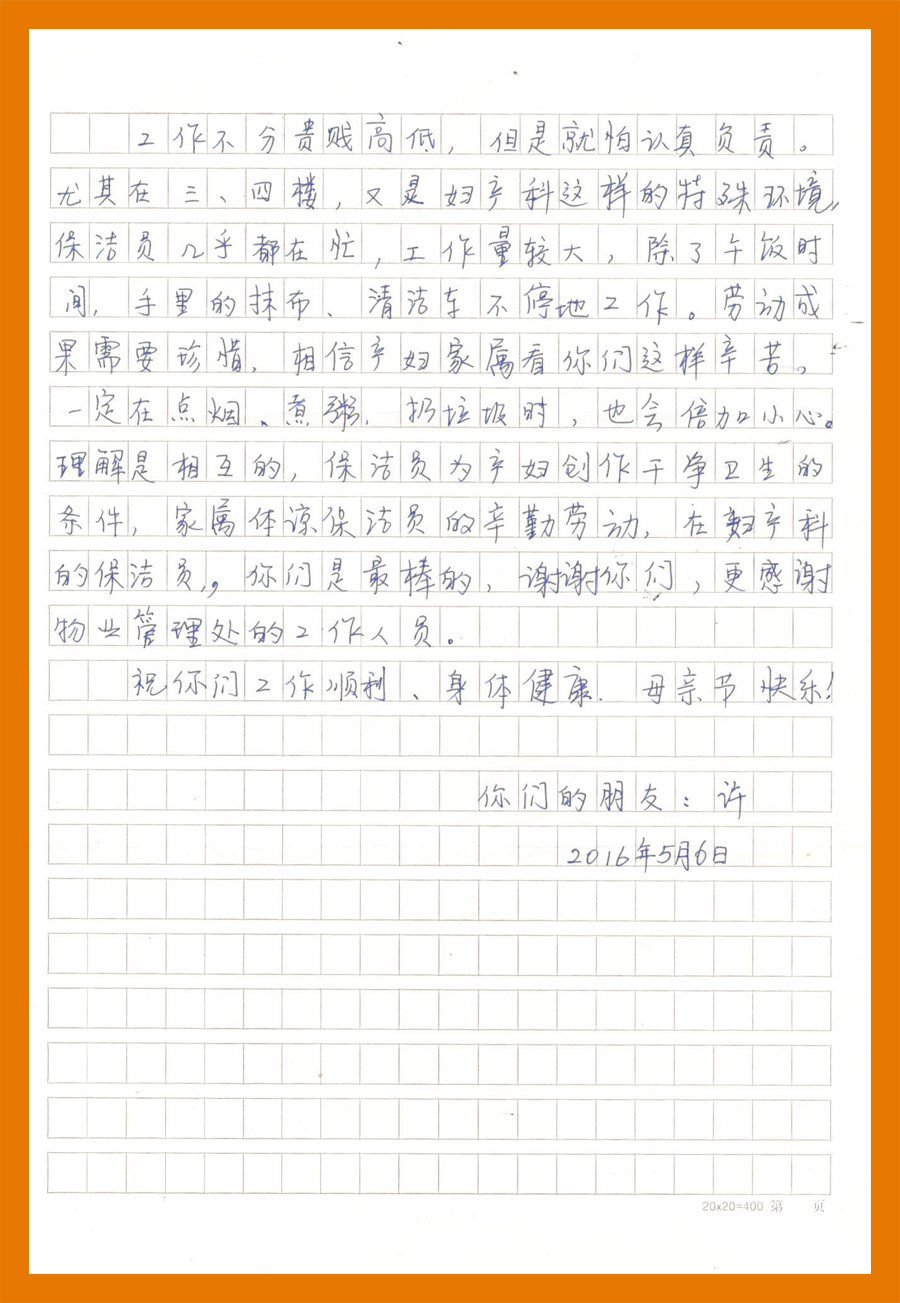 工作不分贵贱高低，但是就怕认真负责。
尤其在三、四楼，又是妇产科这样的特殊环境，
保洁员几乎都在忙，工作量较大，除了午饭时
间，手里的抹布、清洁车不停地工作。劳动成
果需要珍惜，相信产妇家属看你们这样辛苦。
一定在点烟、煮粥，扔垃圾时，也会倍加小心。
理解是相互的，保洁员为产妇创作干净卫生的
条件，家属体谅保洁员的辛勤劳动，在妇产科
的保洁员，。你们是最棒的，谢谢你们，更感谢
物业管理处的工作人员。
祝你们工作顺利、身体健康．母亲节快乐！
你们的朋友：许
2016年5月6日
20x20=400 第 页